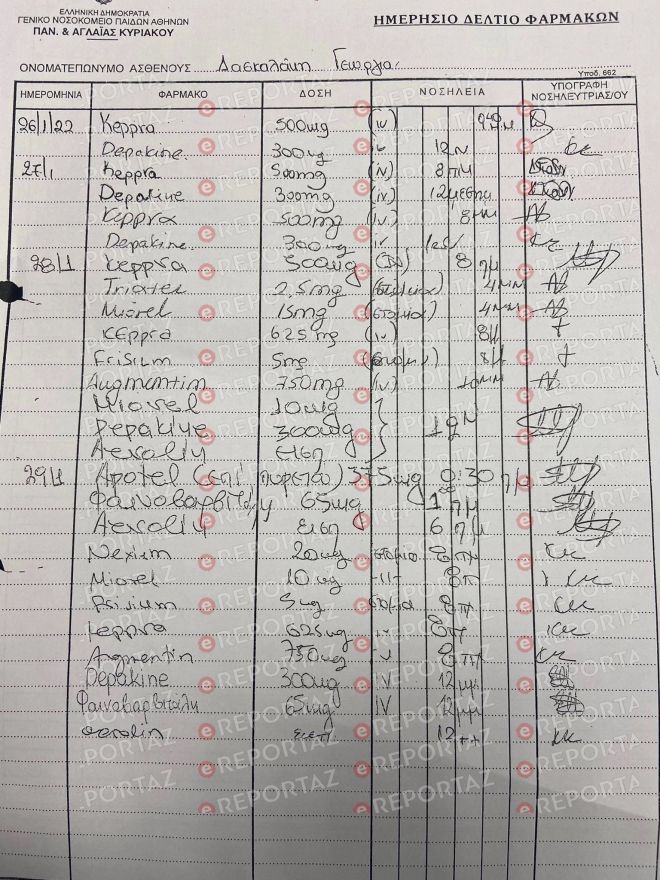 ΕΛΛΗΝΙΚΗ ΔΗΜΟΚΡΑΤΙΑ
ΓΕΝΙΚΟ ΝΟΣΟΚΟΜΕΙΟ ΠΑΙΔΩΝ ΑΘΗΝΩΝ
ΠΑΝ. & ΑΓΛΑΪΑΣ ΚΥΡΙΑΚΟΥ
ΗΜΕΡΗΣΙΟ ΔΕΛΤΙΟ ΦΑΡΜΑΚΩΝ
ΟΝΟΜΑΤΕΠΩΝΥΜΟ ΑΣΘΕΝΟΥΣ Δασκαλάκη Γεωργία
Υποδ. 662
ΗΜΕΡΟΜΗΝΙΑ ΦΑΡΜΑΚΟ ΔΟΣΗ ΝΟΣΗΛΕΙΑ ΥΠΟΓΡΑΦΗ ΝΟΣΗΛΕΥΤΡΙΑΣ/ΟΥ
26/1/22 Keppra 500mg (iv)
Depakine 300mg iv 12
27/1 Keppra 500mg (iv) 8πμ
Depakine 300mg (iv) 12μεσημ
Keppra 500mg (iv) 8μμ
Depakine 300mg iv
28/1 Keppra 500mg (IV) 8 πμ
Triatec 2,5mg (στόμα) 4μμ
Miorel 15mg (στόμα) 4μμ
Keppra 625mg (iv) 8μ
Frisium 5mg (στόμα) 8μ
Augmentin 750mg (iv) 10μμ
Miorel 10mg
Depakine 300mg 12
Aerolin εισπ
29/1 Apotel (επί πυρετού) 375mg 0:30 πμ
Φαινοβαρβιτάλη 65mg 1 πμ
Aerolin εισπ 6 πμ
Nexium 20mg στόμα 8πμ
Miorel 10mg -|||- 8π
Frisium 5mg στόμα 8π
Keppra 625mg iv 8π
Augmentin 750mg iv 8π
Depakine 300mg IV 12μμ
Φαινοβαρβιτάλη 65mg IV 12μμ
aerolin εισπ 12
eREPORTAZ